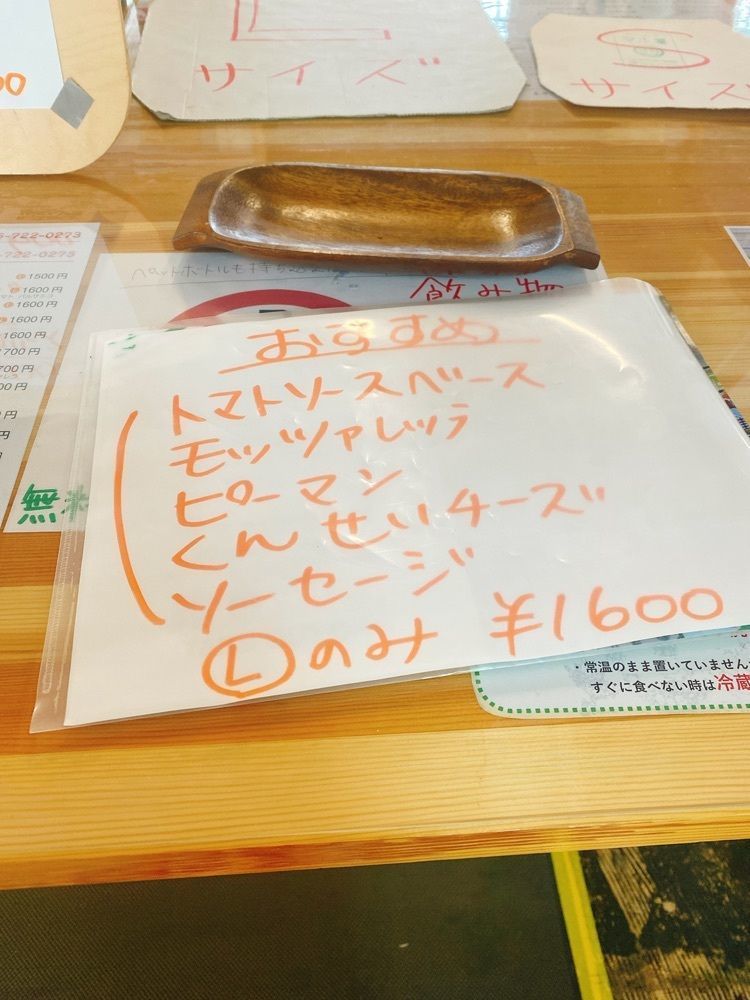 L
サイズ
S
サイズ
00
-722-0273
-722-0273
1500円
1600円
1600円
1600円
700円
700円
飲み物
おすすめ
トマトソースベース
モッツァレッラ
ピーマン
くんせいチーズ
ソーセージ
Ⓛのみ ¥1600
・常温のまま置いていません
すぐに食べない時は冷蔵